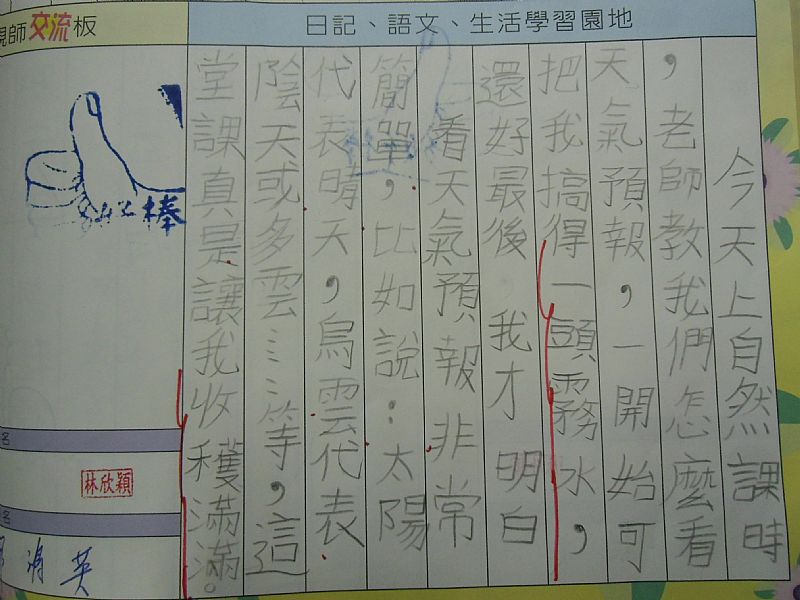 日記、語文、生活學習園地
親師交流板
今天上自然課時
，老師教我們怎麼看
天氣預報，一開始可
把我搞得一頭霧水，
還好最後，我才明白
看天氣預報非常
簡單，比如說：太陽
代表晴天，烏雲代表
陰天或多雲⋮⋮等，這
堂課真是讓我收穫滿滿。
棒
名
林欣穎
名